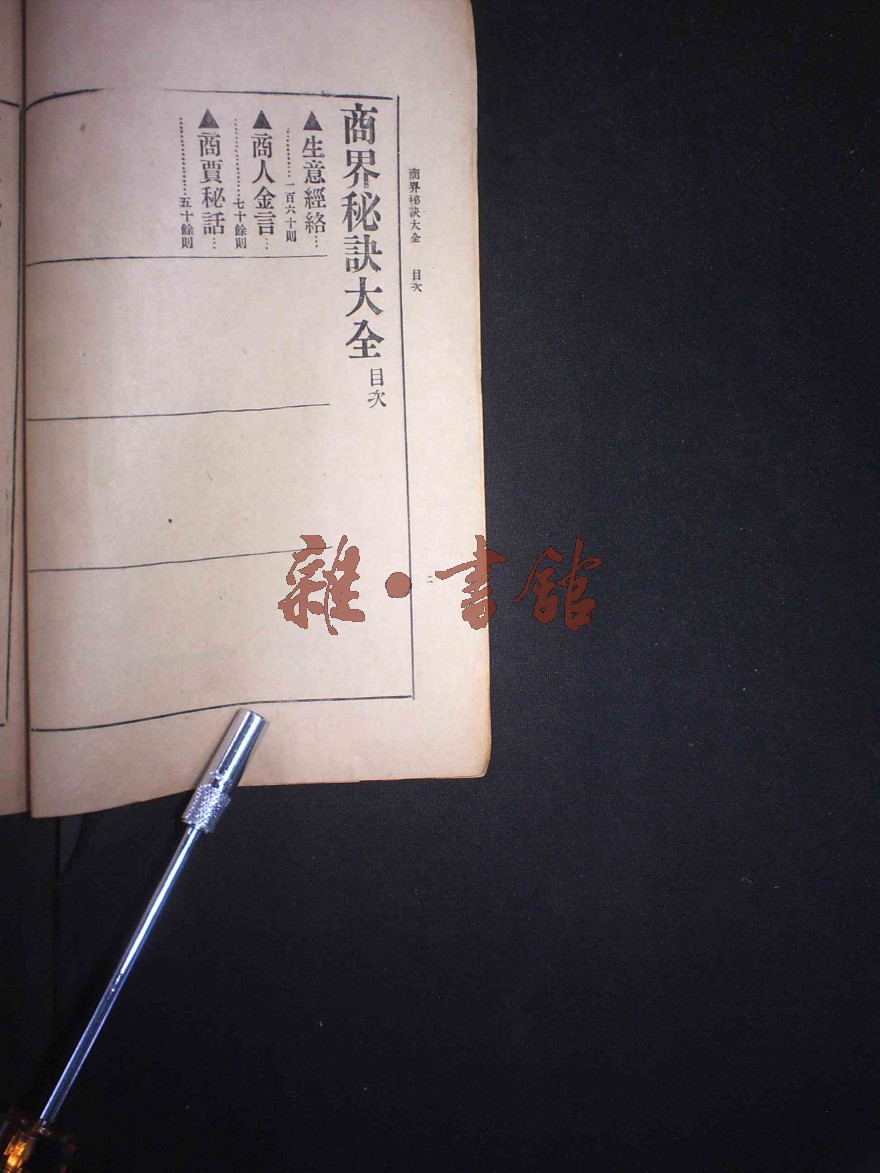 商界秘訣大全 目次
二
商界秘訣大全目次
▲生意經絡…
…………一百六十則
▲商人金言…
…………七十餘則
▲商賈秘話…
…………五十餘則
雜·書館